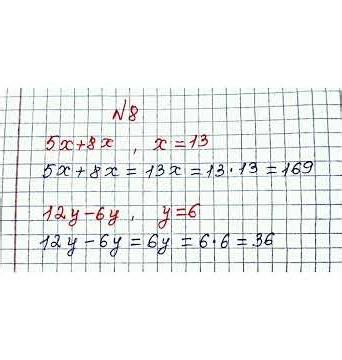 №8.
5x+8x , x=13
5x+8x=13x=13·13=169
12y-6y, y=6
12y-6y=6y=6·6=36